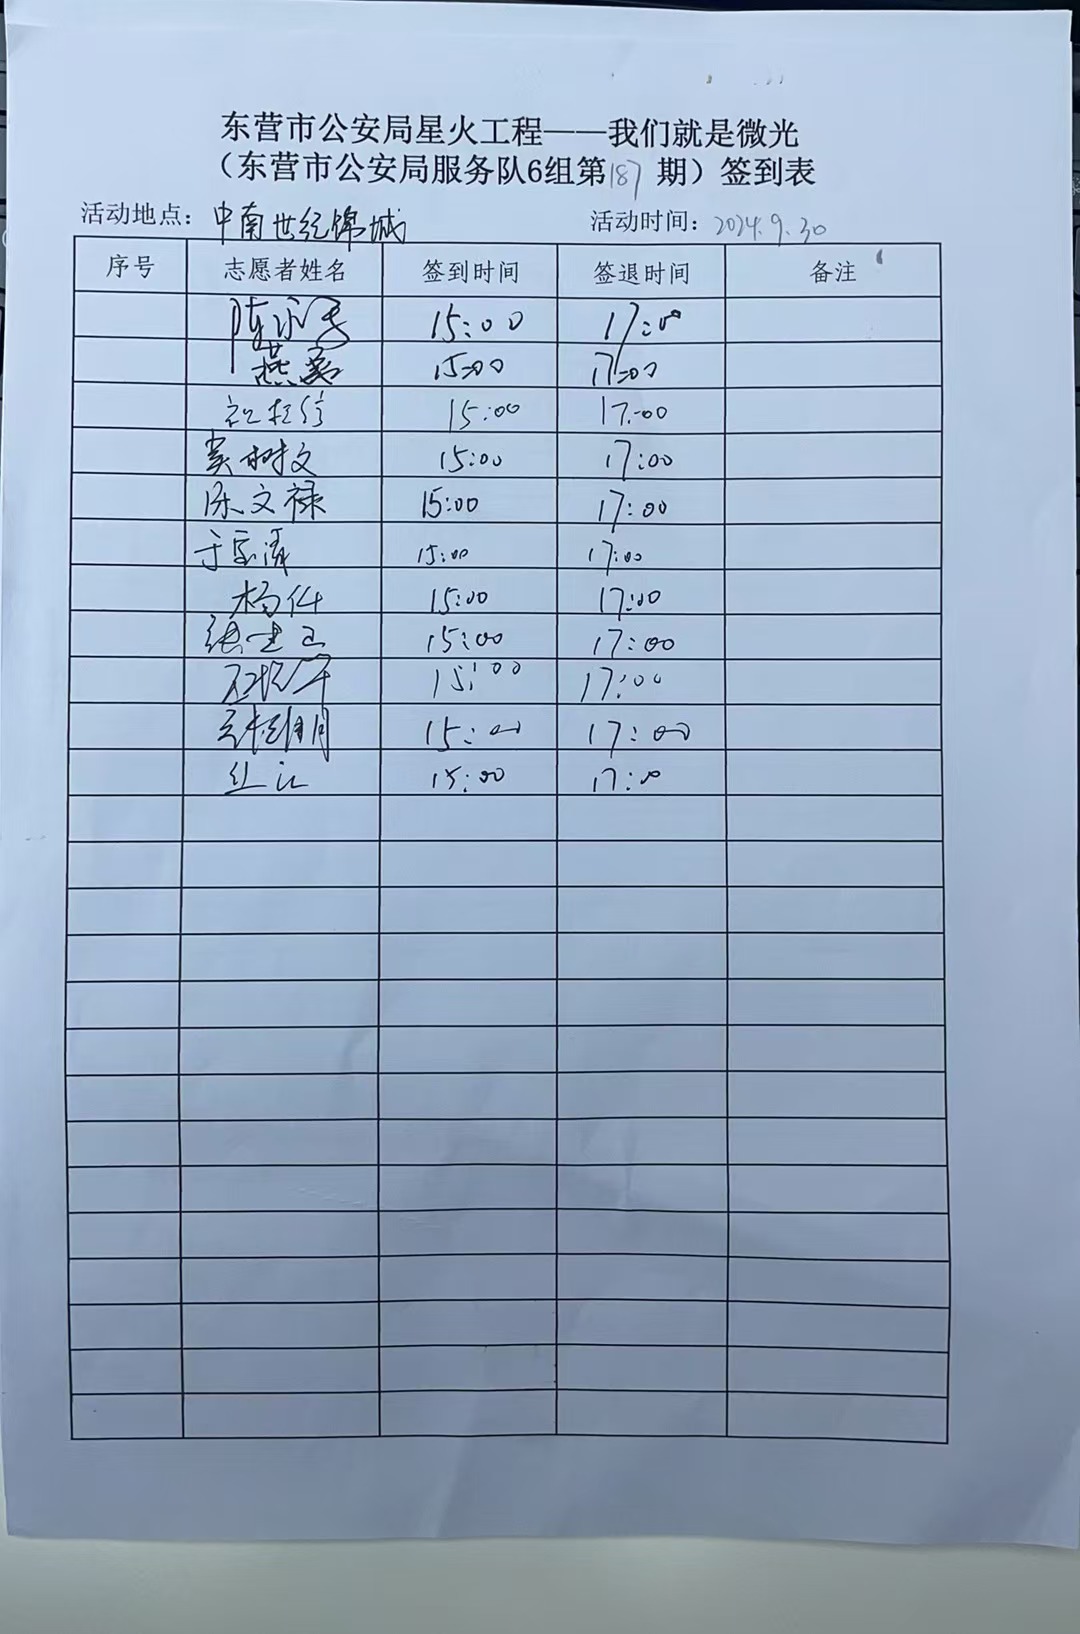 东营市公安局星火工程——我们就是微光
（东营市公安局服务队6组第187期）签到表
活动地点：中南世纪锦城 活动时间：2024.9.30
序号 志愿者姓名 签到时间 签退时间 备注
陈 15:00 17:00
燕 15:00 17:00
15:00 17:00
树文 15:00 17:00
陈文禄 15:00 17:00
于宝清 15:00 17:00
杨仕 15:00 17:00
张建 15:00 17:00
15:00 17:00
15:00 17:00
江 15:00 17:00